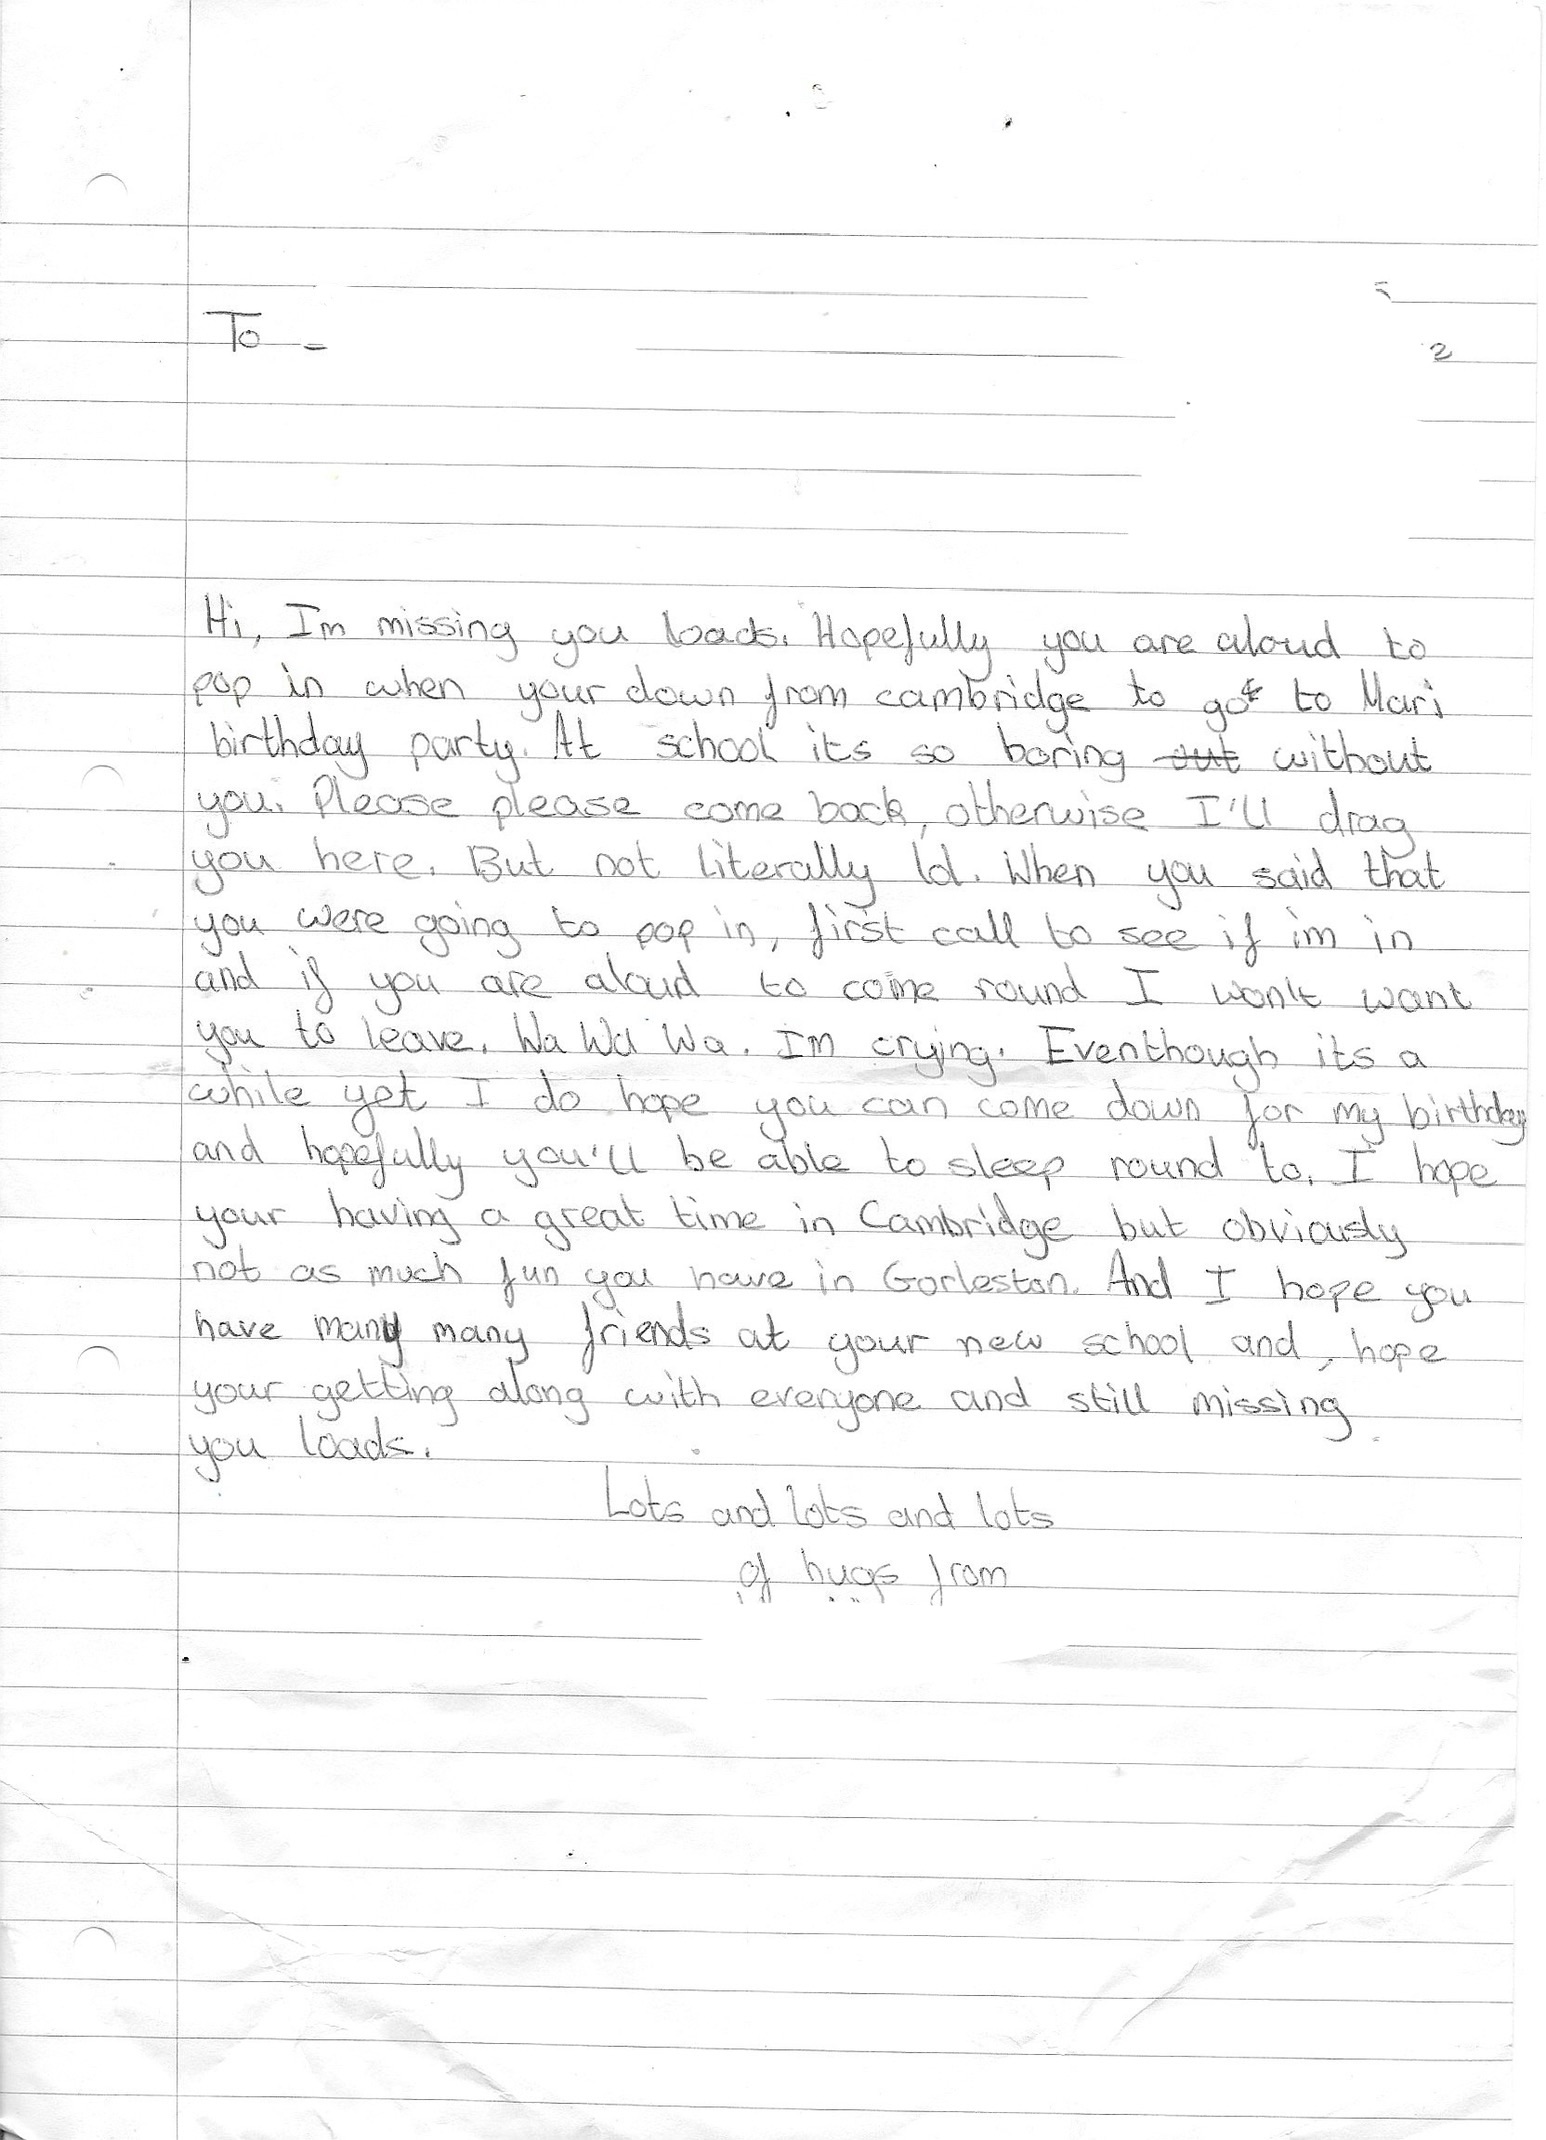 To
2
Hi, Im missing you loads. Hopefully you are aloud to
pop in when your down from cambridge to go to Mari
birthday party. At school its so boring out without
you. Please please come back, otherwise I'll drag
you here. But not literally lol. When you said that
you were going to pop in, first call to see if im in
and if you are aloud to come round I won't want
you to leave. Wa Wa Wa. Im crying. Eventhough its a
while yet I do hope you can come down for my birthday
and hopefully you'll be able to sleep round to. I hope
your having a great time in Cambridge but obviously
not as much fun you have in Gorleston. And I hope you
have many many friends at your new school and, hope
your getting along with everyone and still missing
you loads.
Lots and lots and lots
of hugs from